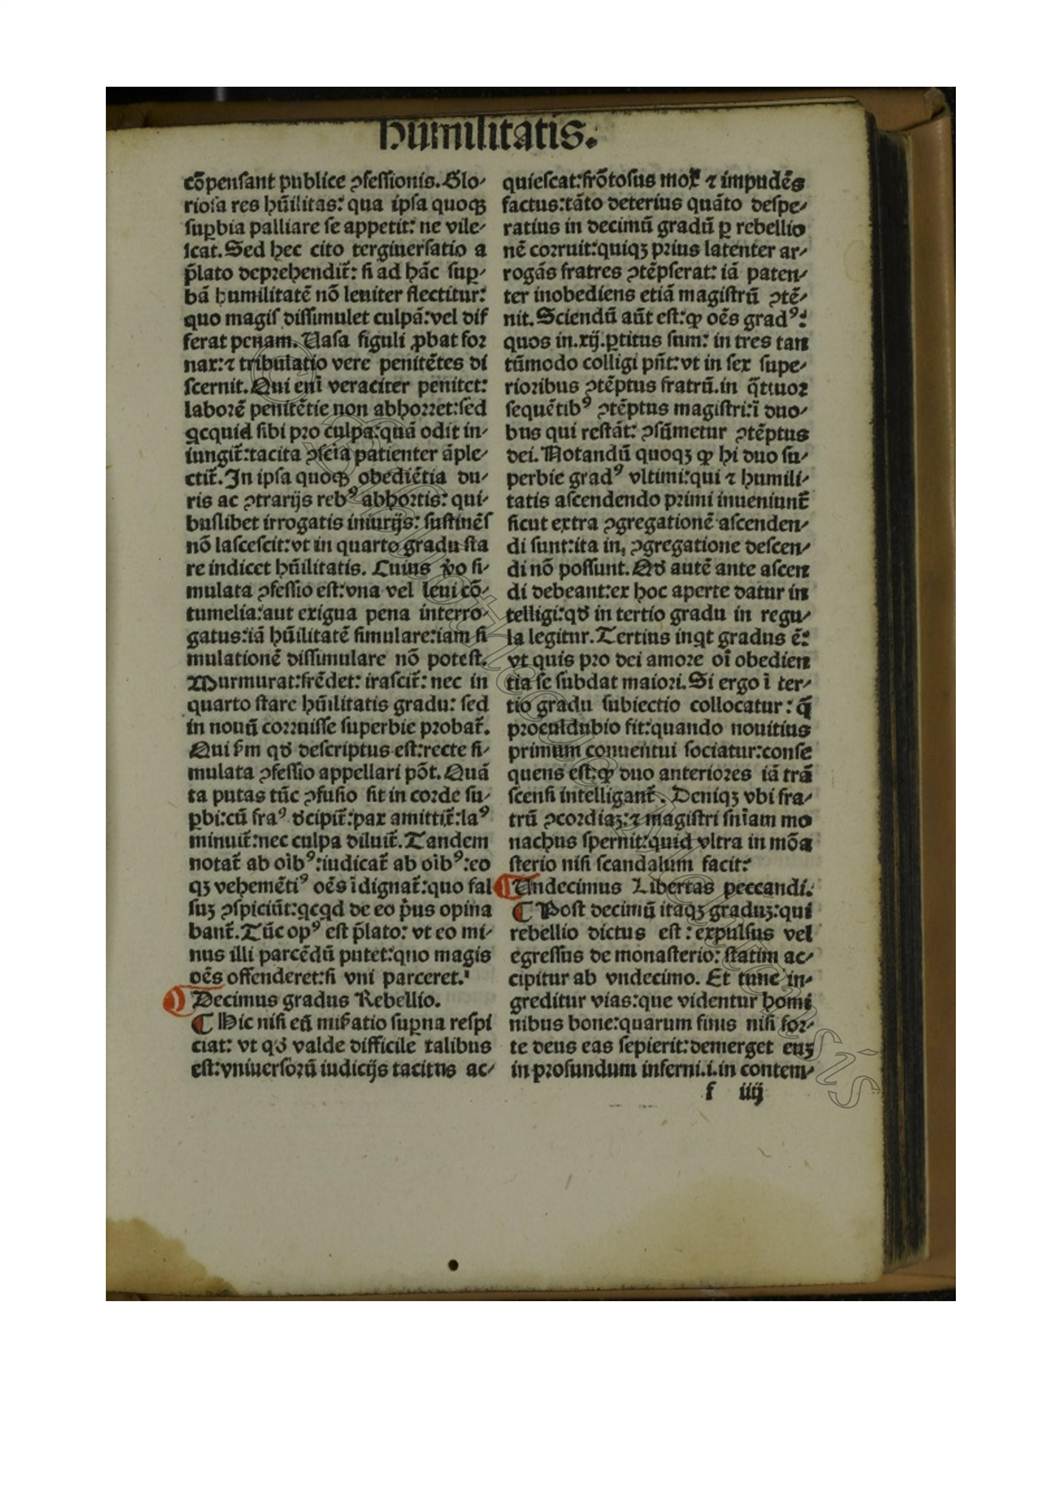 humilitatis.
cõpensant publice ꝯfessionis. Glo-
riosa res hũilitas: qua ipsa quoqꝫ
sup̱bia palliare se appetit: ne vile-
scat. Sed hec cito tergiuersatio a
p̃lato deprehendit̃: si ad hãc sup̱-
bã humilitatẽ nõ leuiter flectitur:
quo magis dissimulet culpã: vel dif
ferat penam. Vasa figuli ꝓbat for
nax: ⁊ tribulatio vere penitẽtes di
scernit. Qui eni̅ veraciter penitet:
laborẽ penitẽtie non abhorret: sed
qcquid sibi pro culpa: quã odit in-
iungit̃: tacita ꝯsciã patienter ãple-
ctit̃. In ipsa quoqꝫ obediẽtia du-
ris ac ꝯtrarijs rebꝰ abhortis: qui-
buslibet irrogatis iniurijs: sustinẽs
nõ lascescit: vt in quarto gradu sta
re indicet hũilitatis. Cuius ṽo si-
mulata ꝯfessio est: vna vel leui cõ-
tumelia: aut exigua pena interro-
gatus: iã hũilitatẽ simulare: iam si
mulationẽ dissimulare nõ potest.
Murmurat: frẽdet: irascit̃: nec in
quarto stare hũilitatis gradu: sed
in nouũ corruisse superbie probat̃.
Qui s̃m qđ descriptus est: recte si-
mulata ꝯfessio appellari põt. Quã
ta putas tũc ꝯfusio sit in corde su-
p̱bi: cũ frauꝰ dcipit̃: pax amittit̃: laꝰ
minuit̃: nec culpa diluit̃. Tandem
notat̃ ab oi̅bꝰ: iudicat̃ ab oi̅bꝰ: eo
qꝫ vehemẽtiꝰ oẽs i̅dignat̃: quo fal
suꝫ ꝯspiciũt: qcqd de eo p̃us opina
bant̃. Tũc opꝰ est p̃lato: vt eo mi-
nus illi parcẽdũ putet: quo magis
oẽs offenderet: si vni parceret.
Decimus gradus Rebellio.
¶ Hic nisi eũ miẛatio sup̱na respi
ciat: vt qđ valde difficile talibus
est: vniuersorũ iudicijs tacitus ac-
quiescat: frõtosus mox ⁊ impudẽs
factus: tãto deterius quãto despe-
ratius in decimũ gradũ p̱ rebellio
nẽ corruit: quiqꝫ prius latenter ar-
rogãs fratres ꝯtẽpserat: iã paten-
ter inobediens etiã magistrũ ꝯtẽ-
nit. Sciendũ aũt est: ꝙ oẽs gradꝰ:
quos in .xij. p̱titus sum: in tres tan
tũmodo colligi pñt: vt in sex supe-
rioribus ꝯtẽptus fratrũ. in q̃ttuor
sequẽtibꝰ ꝯtẽptus magistri: i̅ duo-
bus qui restãt: ꝯsũmetur ꝯtẽptus
dei. Notandũ quoqꝫ ꝙ hi duo su-
perbie gradꝰ vltimi: qui ⁊ humili-
tatis ascendendo primi inueniunt̃
sicut extra ꝯgregationẽ ascenden-
di sunt: ita in, ꝯgregatione descen-
di nõ possunt. Qđ autẽ ante ascen
di debeant: ex hoc aperte datur in
telligi: qđ in tertio gradu in regu-
la legitur. Tertius inqt gradus ẽ:
vt quis pro dei amore oi̅ obedien
tia se subdat maiori. Si ergo i̅ ter-
tio gradu subiectio collocatur: q̃
proculdubio fit: quando nouitius
primum conuentui sociatur: conse
quens est: ꝙ duo anteriores iã trã
scensi intelligant̃. Deniqꝫ vbi fra-
trũ ꝯcordiaꝫ: ⁊ magistri sni̅am mo
nachus spernit: quid vltra in mõa
sterio nisi scandalum facit:
Undecimus Libertas peccandi.
¶ Post decimũ itaqꝫ graduꝫ: qui
rebellio dictus est: expulsus vel
egressus de monasterio: statim ac-
cipitur ab vndecimo. Et tunc in-
greditur vias: que videntur homi
nibus bone: quarum finis nisi for-
te deus eas sepierit: demerget euꝫ
in profundum inferni .i. in contem-
f iiij